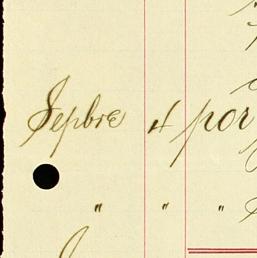 Sepbre 4 por
" " "